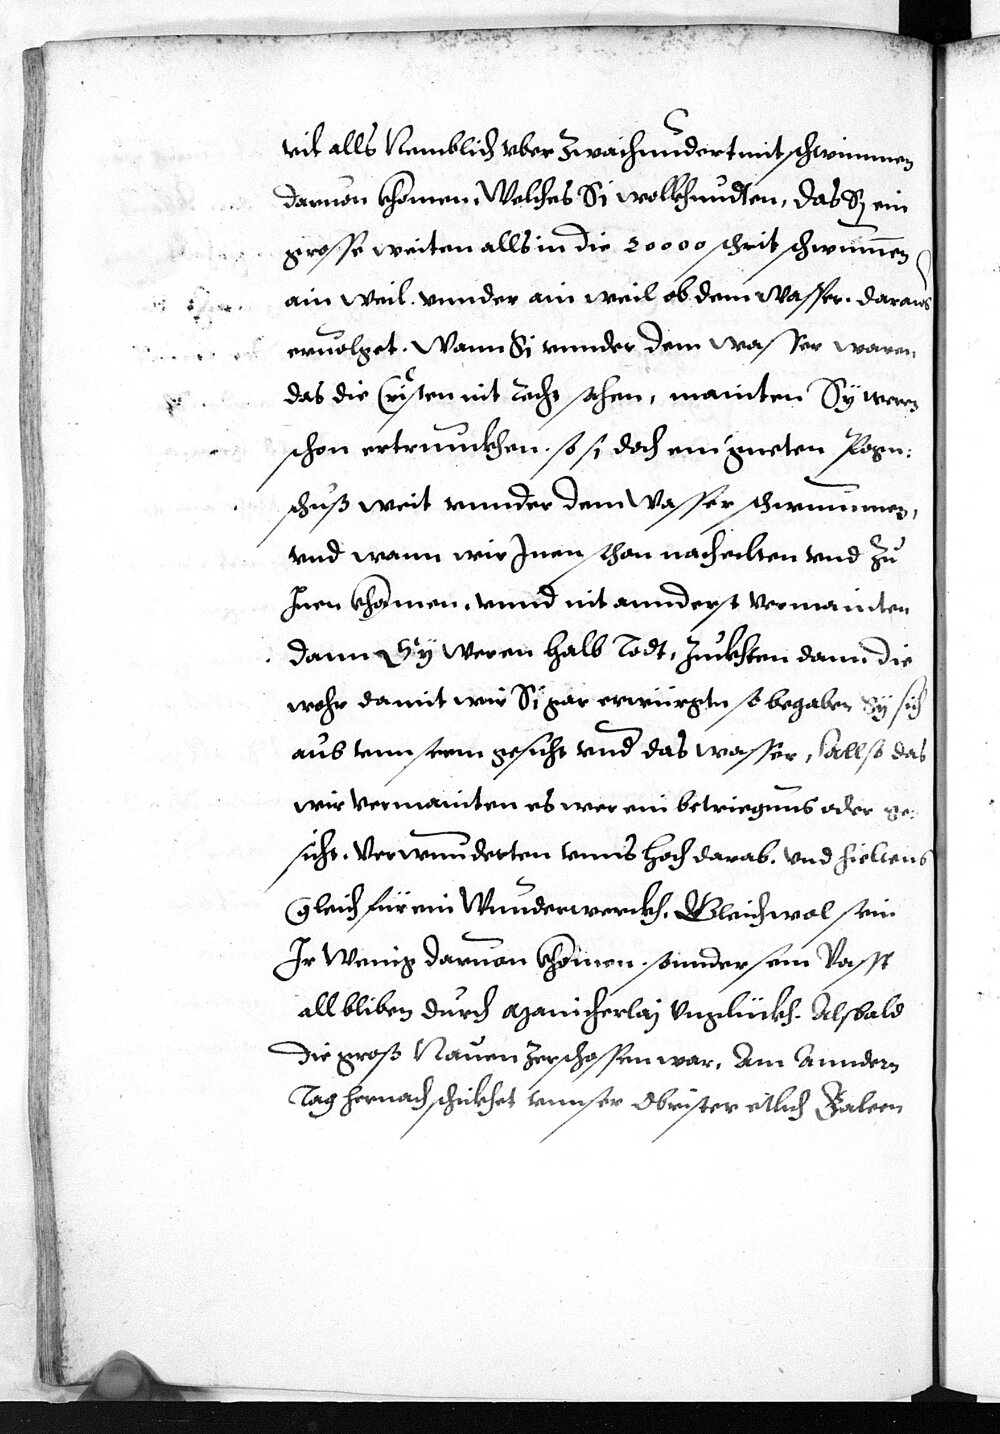 vil alls Nemblich vber Zwaihundert mit schwimmen
daruon khomen. Welches Si wol khundten, das Sy ein
grosse weiten alls in die 20000 schrit schwumen
ain weil. vnnder ain weil ob dem Wasser. daraus
eruolget. Wann Si vnnder dem wasser waren
das die Cristen nit recht sehen, mainten Sy weren
schon ertrunckhen. so si doch ein gueten Pogen:
schuß weit vnnder dem Wasser schwummen,
vnd wann wir Inen schon nacheilten vnd Zu
Inen khomen. vnnd nit annderst vermainten
dann Sy weren halb Todt, Zuckhten dann die
wehr damit wir Si gar erwürgtn so begaben Sy sich
aus vnnserem gesicht vnd das wasser, allso das
wir vermainten es wer ein betriegnus oder ge:
sicht. Verwunderten vnns hoch darab. vnd hieltens
gleich für ein Wunderwerckh. Gleichwol sein
Ir Wenig daruon khomen. sunder sein Vasst
all bliben durch manicherlaj vnglückh. Alsbald
die groß Nauen Zerschossen war. Am Anndern
Tag hernach schickhet vnnser Obrister etlich Galeen